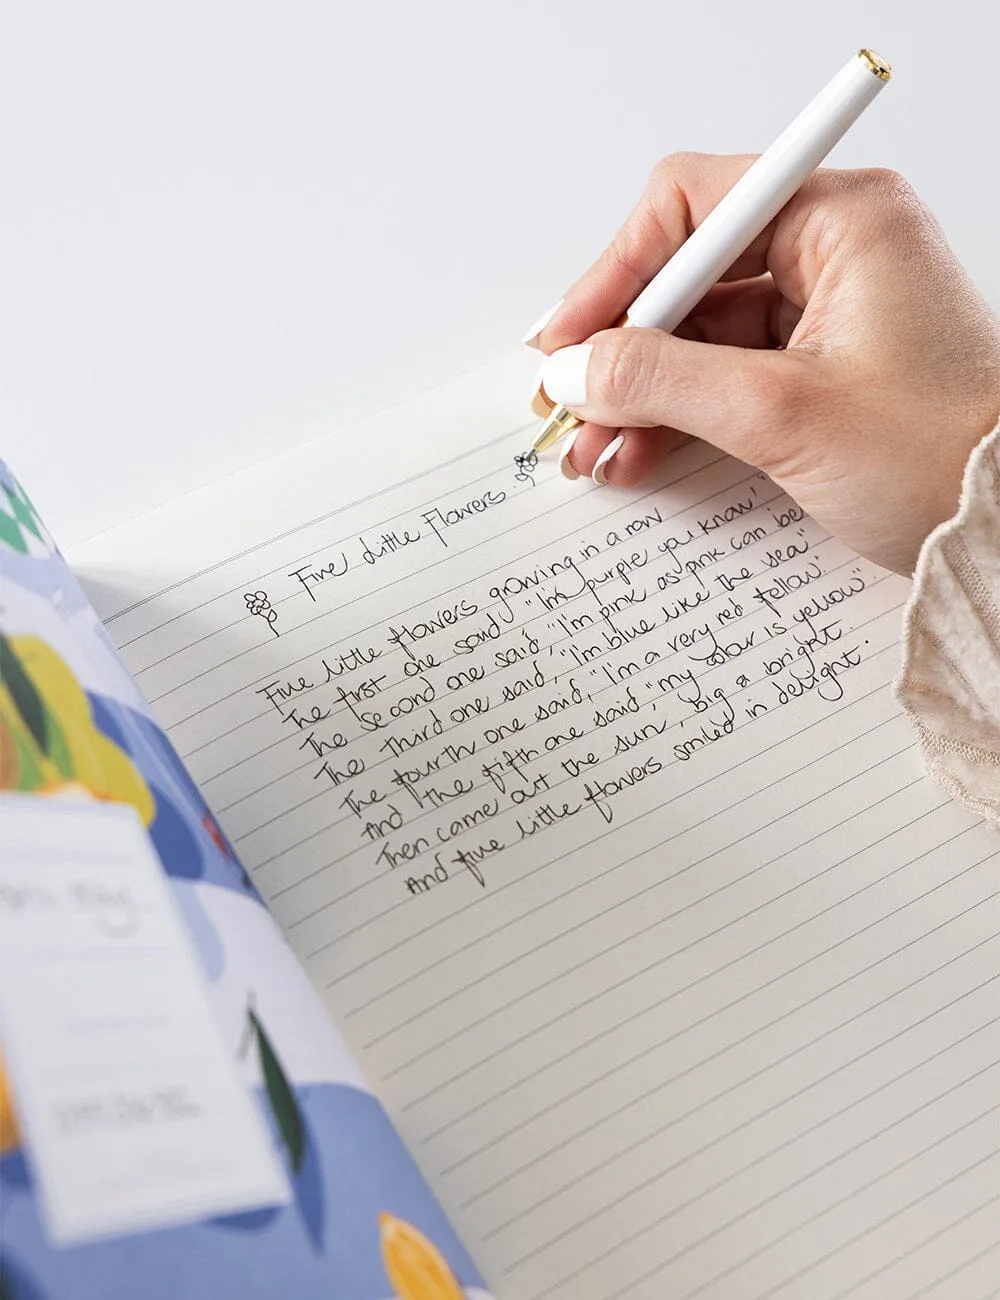 Five Little Flowers
Five little flowers growing in a row
The first one said, "I'm purple you know"
The second one said, "I'm pink as pink can be
The third one said, "I'm blue like the sea"
The fourth one said, "I'm a very red fellow".
And the fifth one said, "my color is yellow".
Then came out the sun, big a bright.
And five little flowers smiled in delight.